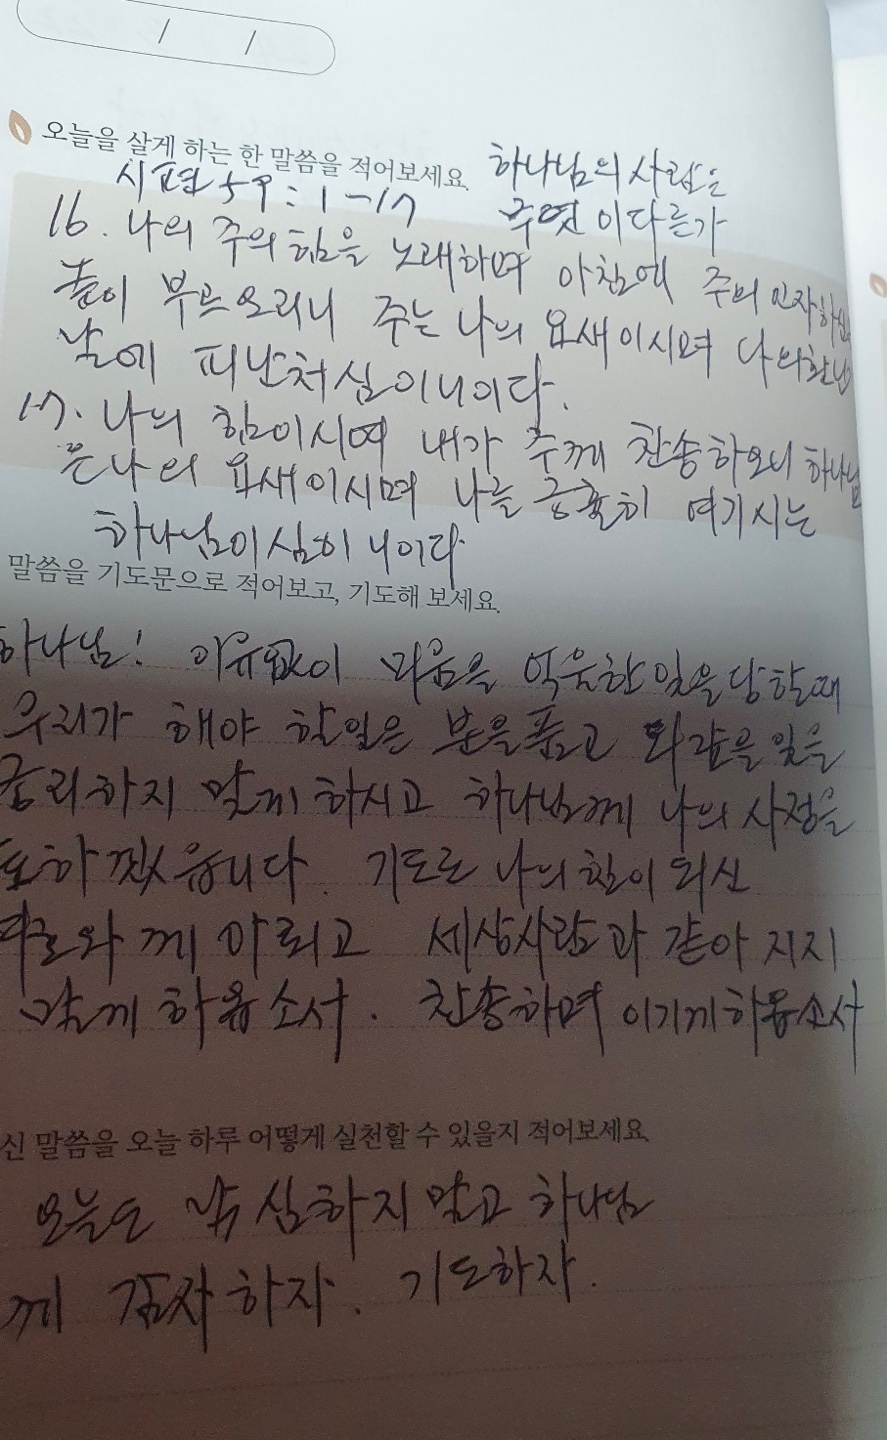 / /
오늘을 살게 하는 한 말씀을 적어보세요.
하나님의 사람은
시편 59 : 1 - 17 무엇이 다른가
16. 나의 주의 힘을 노래하며 아침에 주의 인자하심
높이 부르오리니 주는 나의 요새이시며 나의 환난
날에 피난처심이니이다.
17. 나의 힘이시여 내가 주께 찬송하오니 하나님
은 나의 요새이시며 나를 긍휼히 여기시는
하나님이심이니이다
말씀을 기도문으로 적어보고, 기도해 보세요.
하나님! 이유없이 마음을 억울한 일을 당할때
우리가 해야 할일은 분을품고 일을
하지 맞게 하시고 하나님께 나의 사정을
기도로 나의 힘이 되신
여호와께 아뢰고 세상사람과 같아 지지
말게 하옵소서. 찬송하며 이기게하옵소서
신 말씀을 오늘 하루 어떻게 실천할 수 있을지 적어보세요.
오늘도 낙심하지 말고 하나님
께 감사하자. 기도하자.